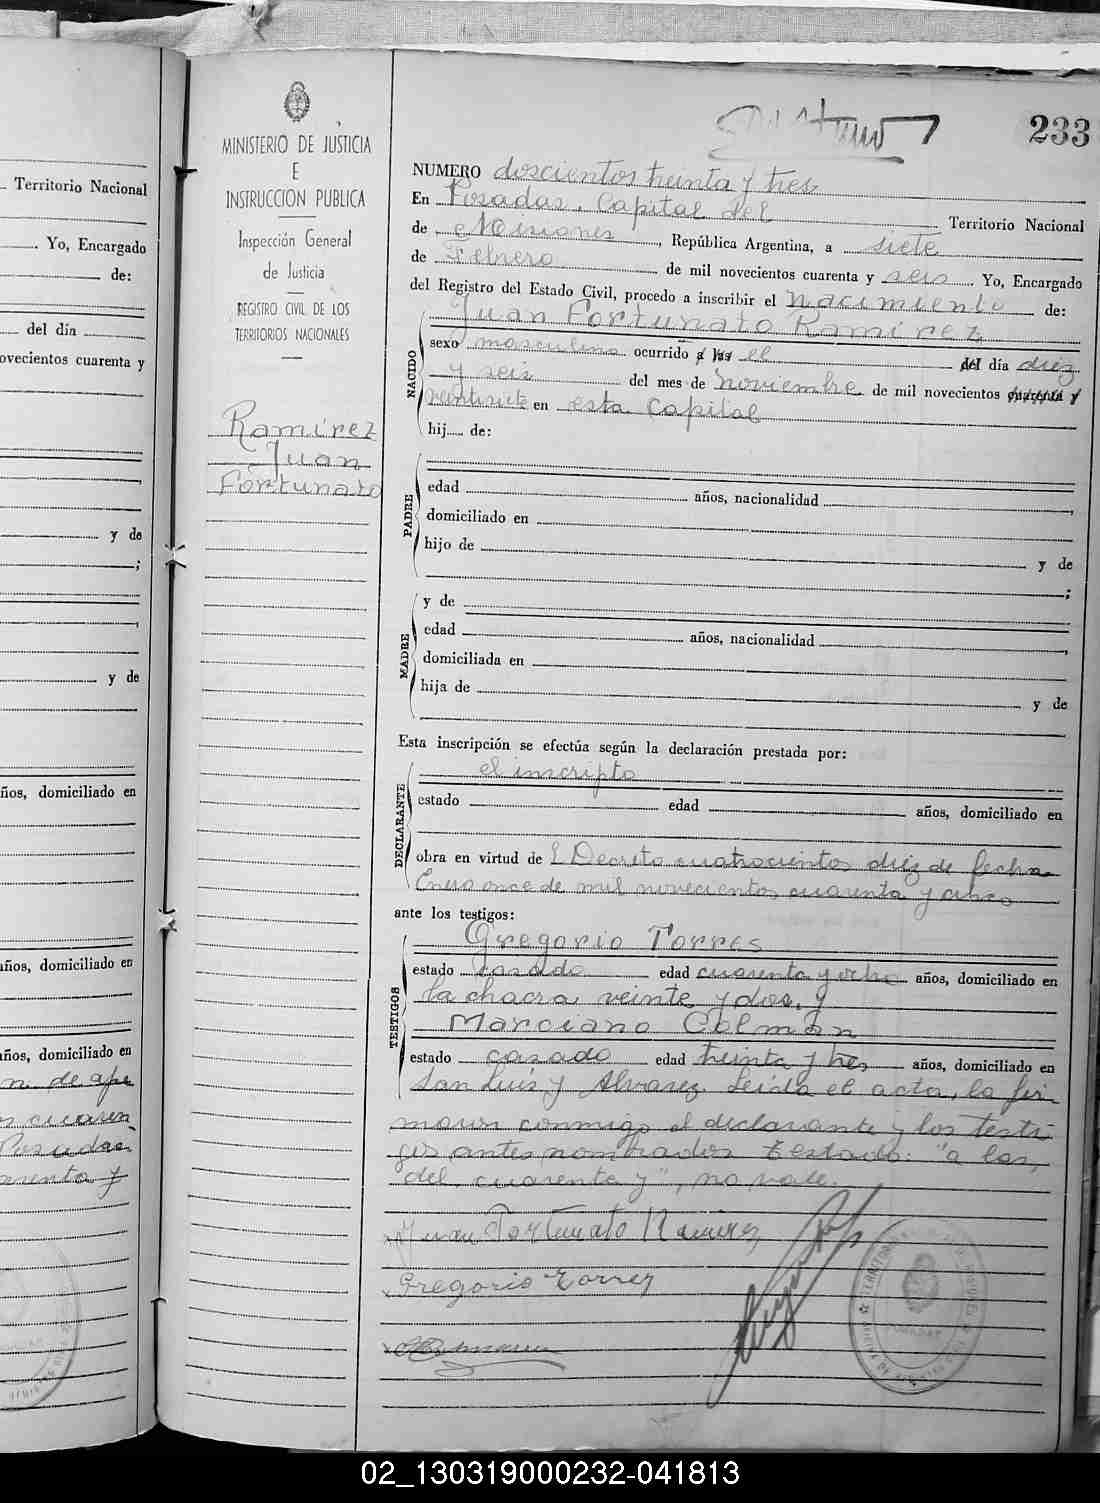 Territorio Nacional
Yo, Encargado
de:
del día
ovecientos cuarenta y
y de
;
,
y de
ños, domiciliado en
años, domiciliado en
años, domiciliado en
n de ape
cuaren
Posadas
y
MINISTERIO DE JUSTICIA
E
INSTRUCCION PUBLICA
Inspección General
de Justicia
REGISTRO CIVIL DE LOS
TERRITORIOS NACIONALES
Ramírez
Juan
Fortunato
233
NUMERO doscientos treinta y tres
En Posadas, Capital del Territorio Nacional
de Misiones, República Argentina, a siete
de Febrero de mil novecientos cuarenta y seis Yo, Encargado
del Registro del Estado Civil, procedo a inscribir el nacimiento de:
Juan Fortunato Ramírez
NACIDO
sexo masculino ocurrido a las el del día diez
y seis del mes de noviembre de mil novecientos cuarenta y
veintisiete en esta Capital
hij de:
PADRE
edad años, nacionalidad ,
domiciliado en
hijo de y de
;
MADRE
y de
edad años, nacionalidad ,
domiciliada en
hija de y de
Esta inscripción se efectúa según la declaración prestada por:
DECLARANTE
el inscripto
estado edad años, domiciliado en
obra en virtud de l Decreto cuatrocientos diez de fecha
Enero once de mil novecientos cuarenta y
ante los testigos:
TESTIGOS
Gregorio Torres
estado casado edad cuarenta y ocho años, domiciliado en
la chacra veinte y dos, y
Marciano Colmán
estado casado edad treinta y tres años, domiciliado en
San Luis y Alvarez. Leida el acta, la fir
maron conmigo el declarante y los testi
gos antes nombrados. Testado: "a las,
del, cuarenta y", no vale.
Juan Fortunato Ramirez
Gregorio Torres
POSADAS
02_130319000232-041813